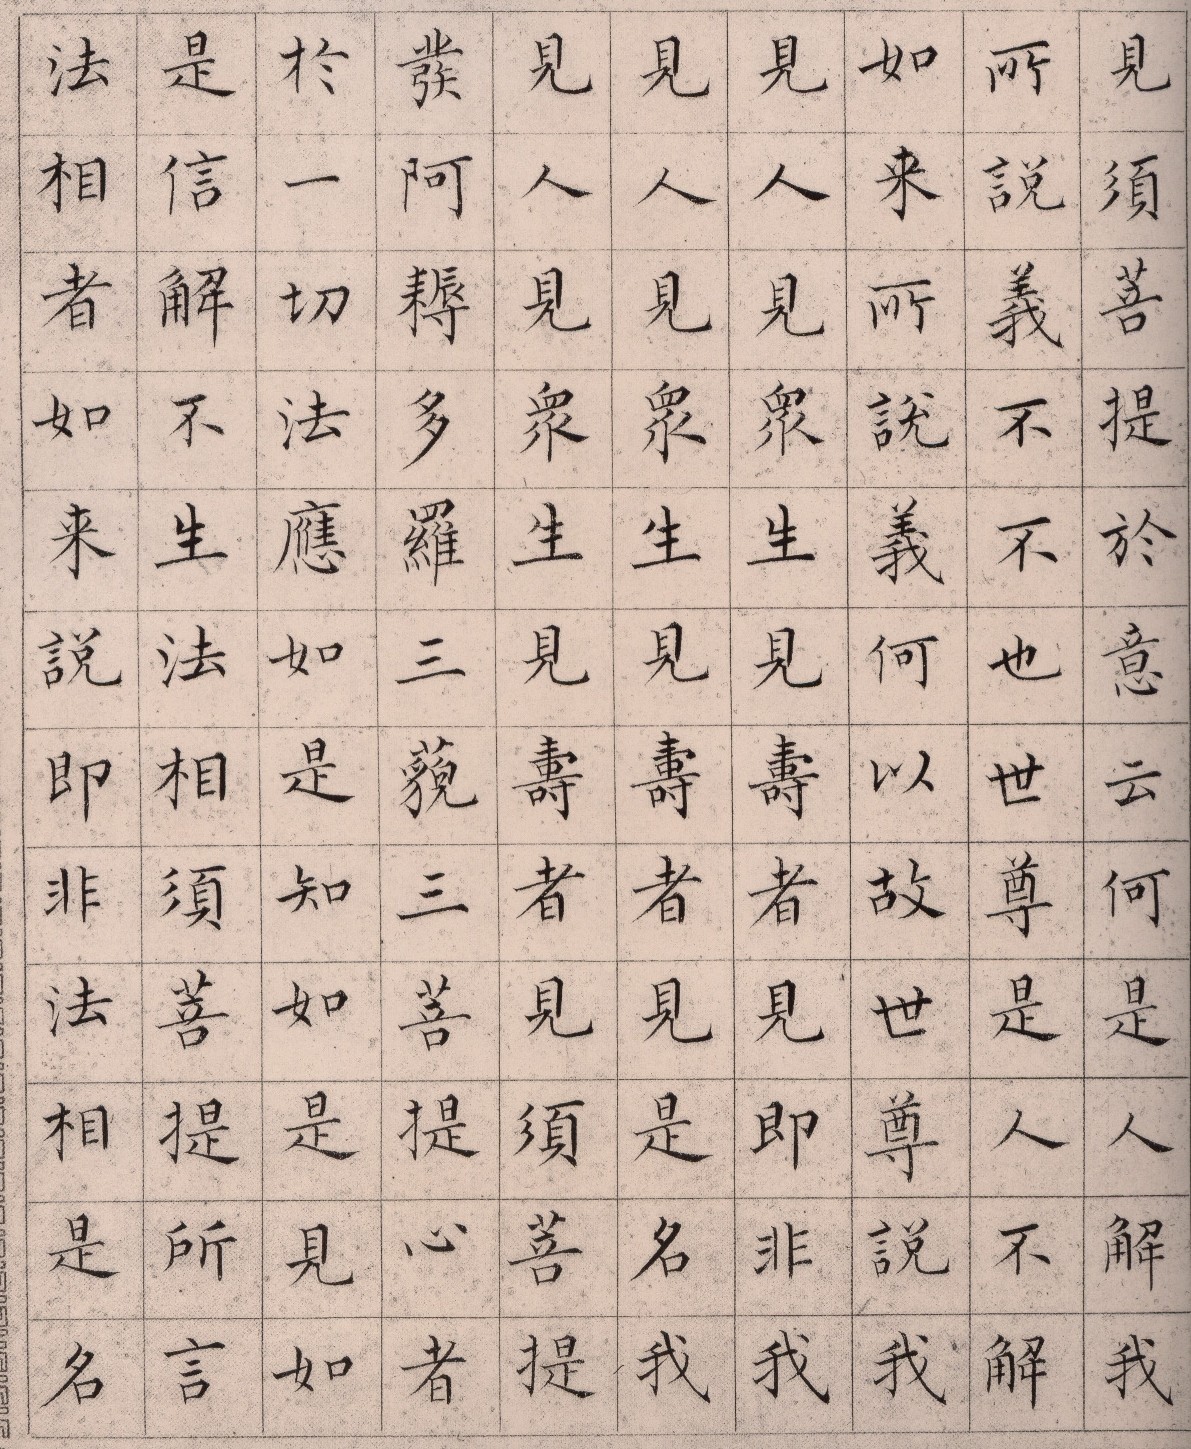 見須菩提於意云何是人解我
所說義不不也世尊是人不解
如来所說義何以故世尊說我
見人見眾生見壽者見即非我
見人見眾生見壽者見是名我
見人見眾生見壽者見須菩提
發阿耨多羅三藐三菩提心者
於一切法應如是知如是見如
是信解不生法相須菩提所言
法相者如来說即非法相是名